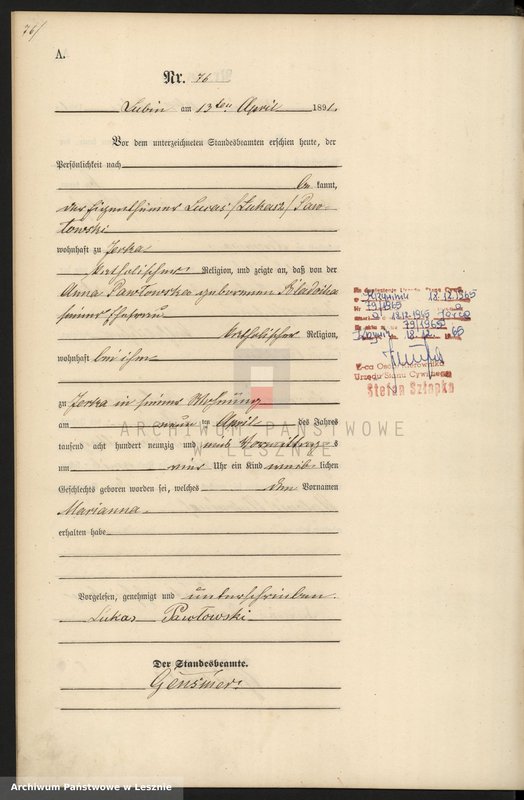 76/
A.
Nr. 76
Lubin am 13ten April 1891.
Vor dem unterzeichneten Standesbeamten erschien heute, der
Persönlichkeit nach
be kannt,
der Eigenthümer Lucas /Lukasz/ Paw-
łowski
wohnhaft zu Jerka
katholischer Religion, und zeigte an, daß von der
Anna Pawłowska geborenen
seiner Ehefrau
katholischer Religion,
wohnhaft bei ihm
zu Jerka in seiner Wohnung
am neunten April des Jahres
tausend acht hundert neunzig und eins Vormittags
um vier Uhr ein Kind weiblichen
Geschlechts geboren worden sei, welches den Vornamen
Marianna
erhalten habe
Vorgelesen, genehmigt und unterschrieben.
Lukas Pawłowski
Der Standesbeamte.
Gensmer.
18.12.1965
79/1965
18.12.1965
79/1965
18.12. 65
Z-ca Kierownika
Urzędu Stanu Cywilnego
Stefan Szłapka
ARCHIWUM PAŃSTWOWE
W LESZNIE
Archiwum Państwowe w Lesznie